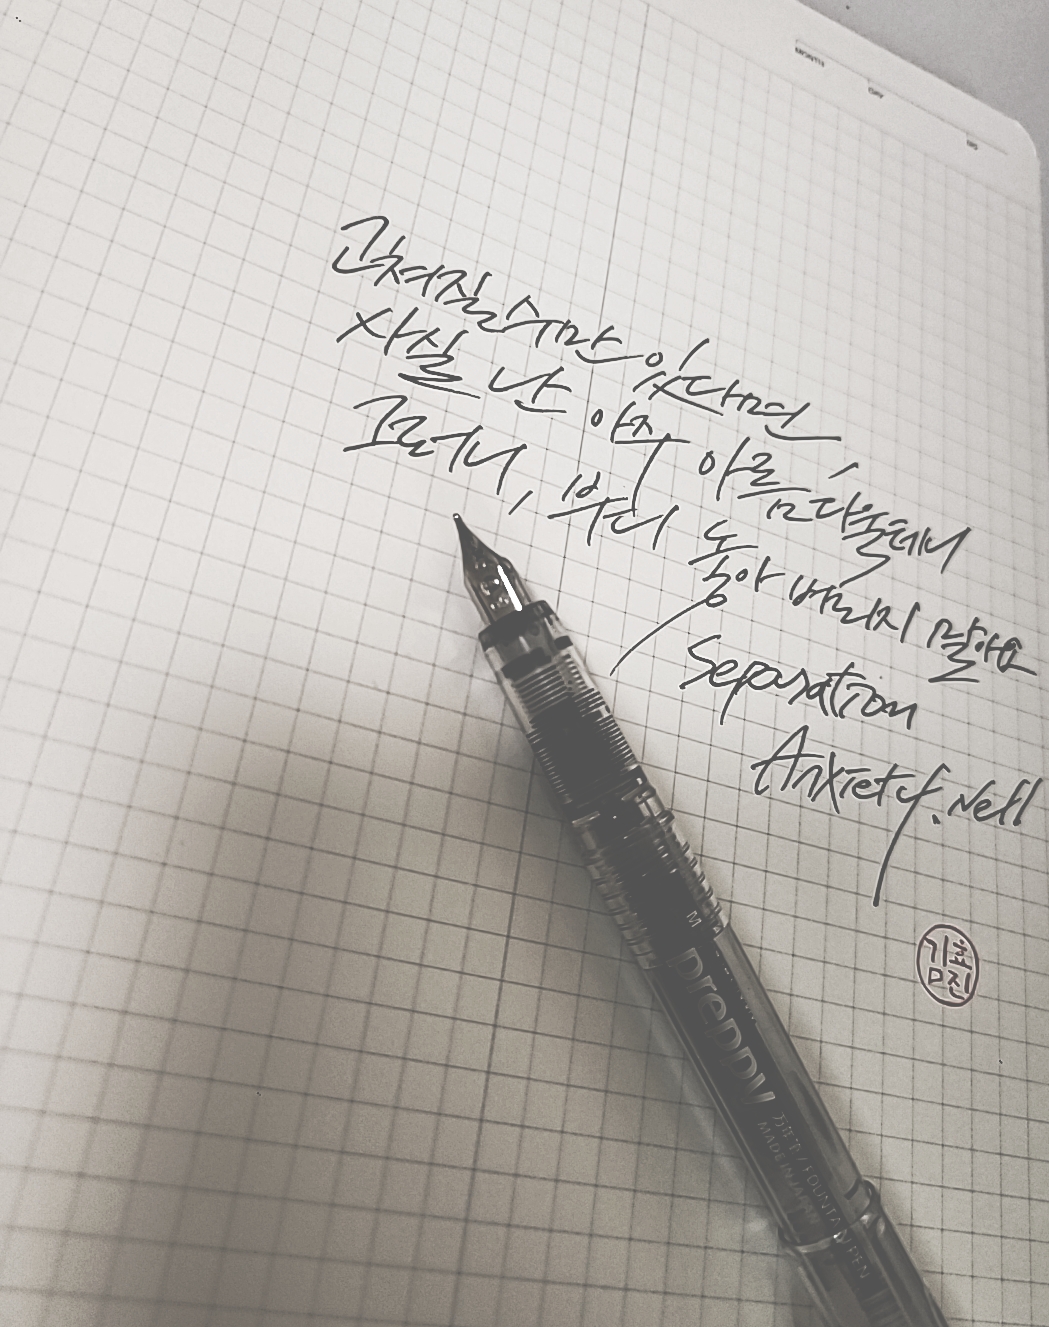 MONTH
DAY
NO
갖춰질 수만 있다면,
사실 난 아주 아름다울테니
그러니, 부디 놓아 버리지 말아요
Separation
Anxiety. Nell
김효진
M
preppy
万年筆 / FOUNTAIN PEN
MADE IN JAPAN